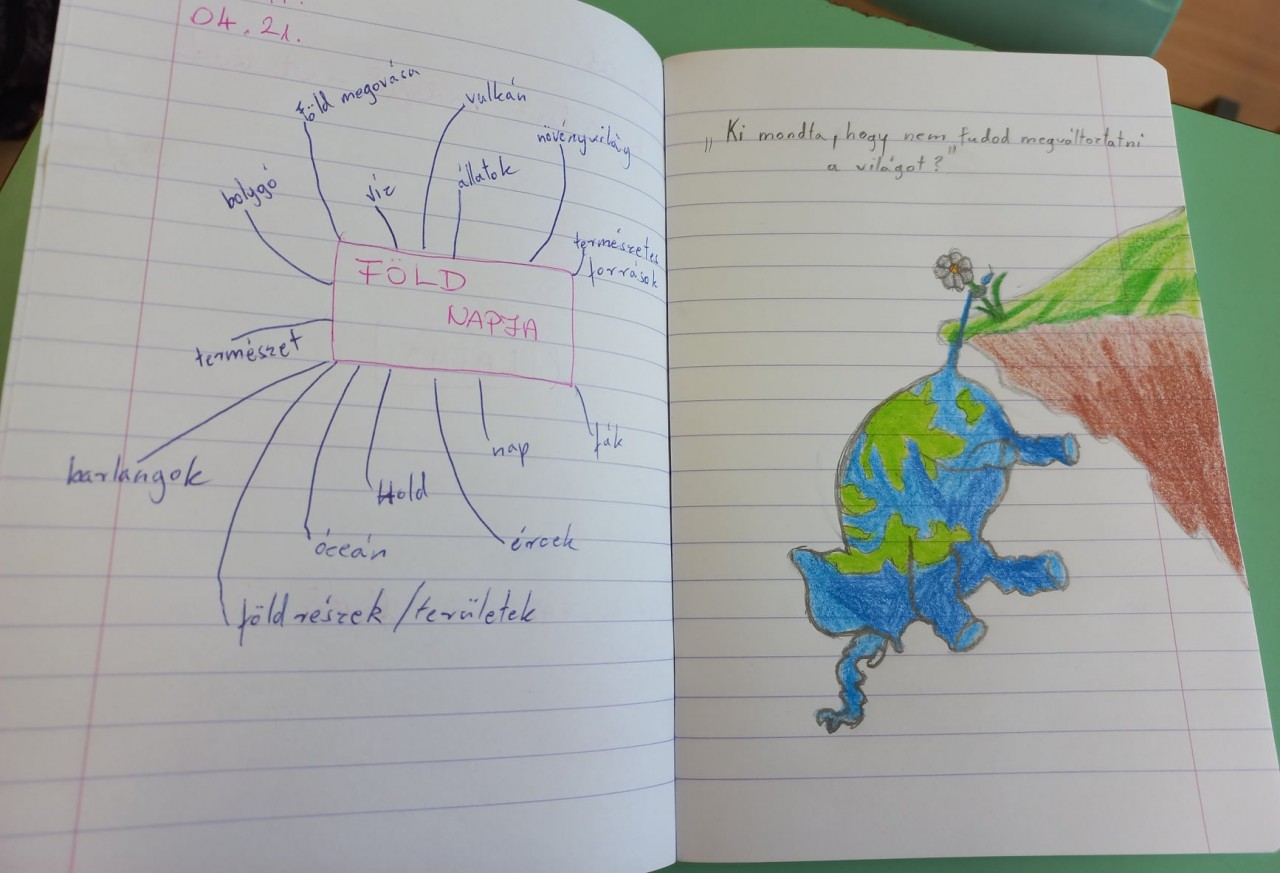 04.21.
föld megovása
vulkán
növényvilág
bolygó
víz
állatok
természetes
források
FÖLD
NAPJA
természet
barlangok
Hold
nap
fák
óceán
ércek
föld részek /területek
„Ki mondta, hogy nem tudod megváltoztatni
a világot?”